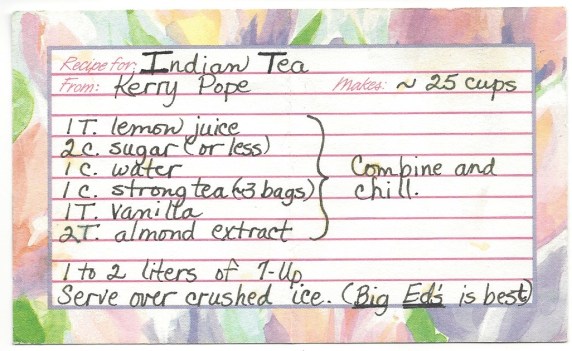 Recipe for: Indian Tea
From: Kerry Pope Makes: ~ 25 cups
1 T. lemon juice
2 c. sugar (or less)
1 c. water
1 c. strong tea (~3 bags)
1 T. vanilla
2 T. almond extract
Combine and
chill.
1 to 2 liters of 7-Up
Serve over crushed ice. (Big Ed's is best)